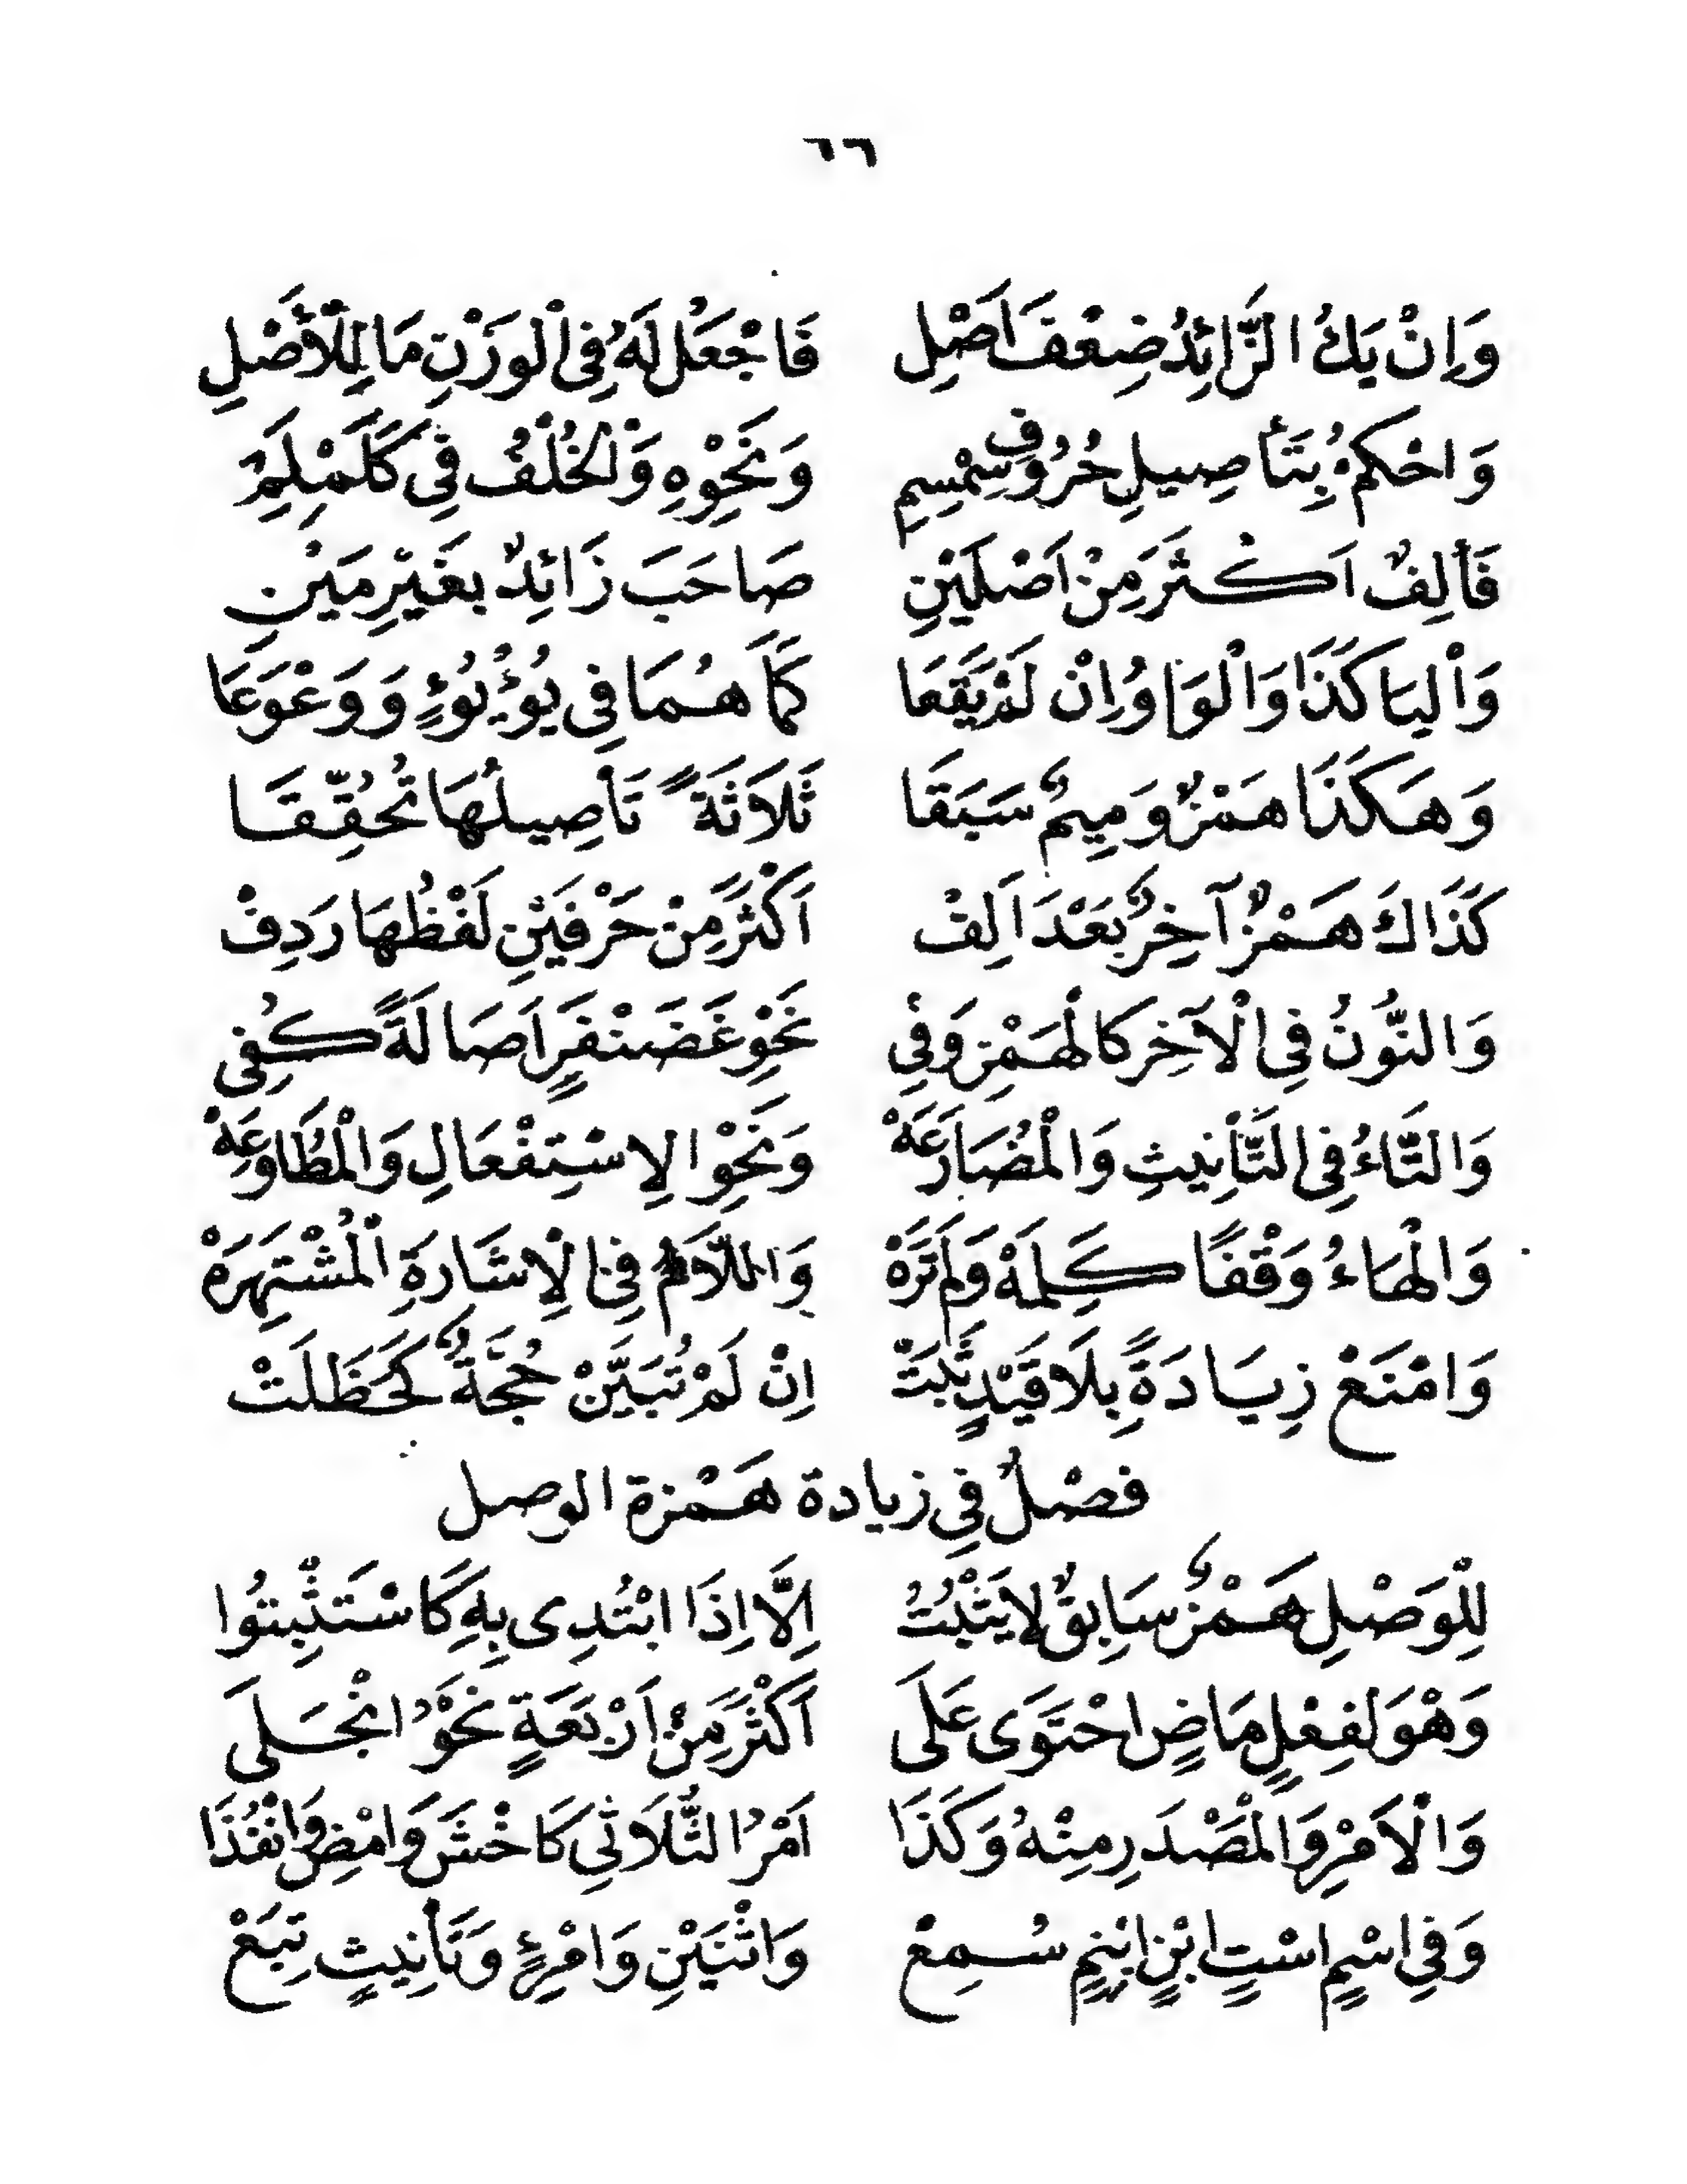 ٦٦
وَاِنْ يَكُ الزَّائِدُ ضِعْفَ اَصْلِ فَاجْعَلْ لَهُ فِى الْوَزْنِ مَا لِلْأَصْلِ
وَاحْكُمْ بِتَأْصِيلِ حُرُوفِ سِمْسِمِ وَنَحْوِهِ وَالْخُلْفُ فِى كَلَمْلِمِ
فَأَلِفٌ اَكْثَرَ مِنْ اَصْلَيْنِ صَاحَبَ زَائِدٌ بِغَيْرِ مَيْنِ
وَالْيَا كَذَا وَالْوَاوُ اِنْ لَمْ يَقَعَا كَمَا هُمَا فِى يُؤْيُؤٍ وَوَعْوَعَا
وَهَكَذَا هَمْزٌ وَمِيمٌ سَبَقَا ثَلَاثَةً تَأْصِيلُهَا تُحُقِّقَا
كَذَاكَ هَمْزٌ آخِرٌ بَعْدَ اَلِفْ اَكْثَرَ مِنْ حَرْفَيْنِ لَفْظُهَا رَدِفْ
وَالنُّونُ فِى الْآخِرِ كَالْهَمْزِ وَفِى نَحْوِ غَضَنْفَرٍ اَصَالَةً كُفِى
وَالتَّاءُ فِى التَّأْنِيثِ وَالْمُضَارَعَهْ وَنَحْوِ الِاسْتِفْعَالِ وَالْمُطَاوَعِهْ
وَالْهَاءُ وَقْفًا كَلِمَهْ وَلَمْ تَرَهْ وَاللَّامُ فِى الْاِشَارَةِ الْمُشْتَهِرَهْ
وَامْنَعْ زِيَادَةً بِلَا قَيْدٍ ثَبَتْ اِنْ لَمْ تُبَيَّنْ حُجَّةٌ كَحَظَلَتْ
فصْلٌ فِى زيادة هَمْزة الوصل
لِلْوَصْلِ هَمْزٌ سَابِقٌ لَا يَثْبُتُ اِلَّا اِذَا ابْتُدِى بِهِ كَاسْتَثْبِتُوا
وَهْوَ لِفِعْلٍ مَاضٍ احْتَوَى عَلَى اَكْثَرَ مِنْ اَرْبَعَةٍ نَحْوُ انْجَلَى
وَالْاَمْرِ وَالْمَصْدَرِ مِنْهُ وَكَذَا اَمْرُ الثُّلَاثِى كَاخْشَ وَامْضِ وَانْفُذَا
وَفِى اسْمٍ اسْتٍ ابْنٍ ابْنِمٍ سُمِعْ وَاثْنَيْنِ وَامْرِئٍ وَتَأْنِيثٍ تَبِعْ